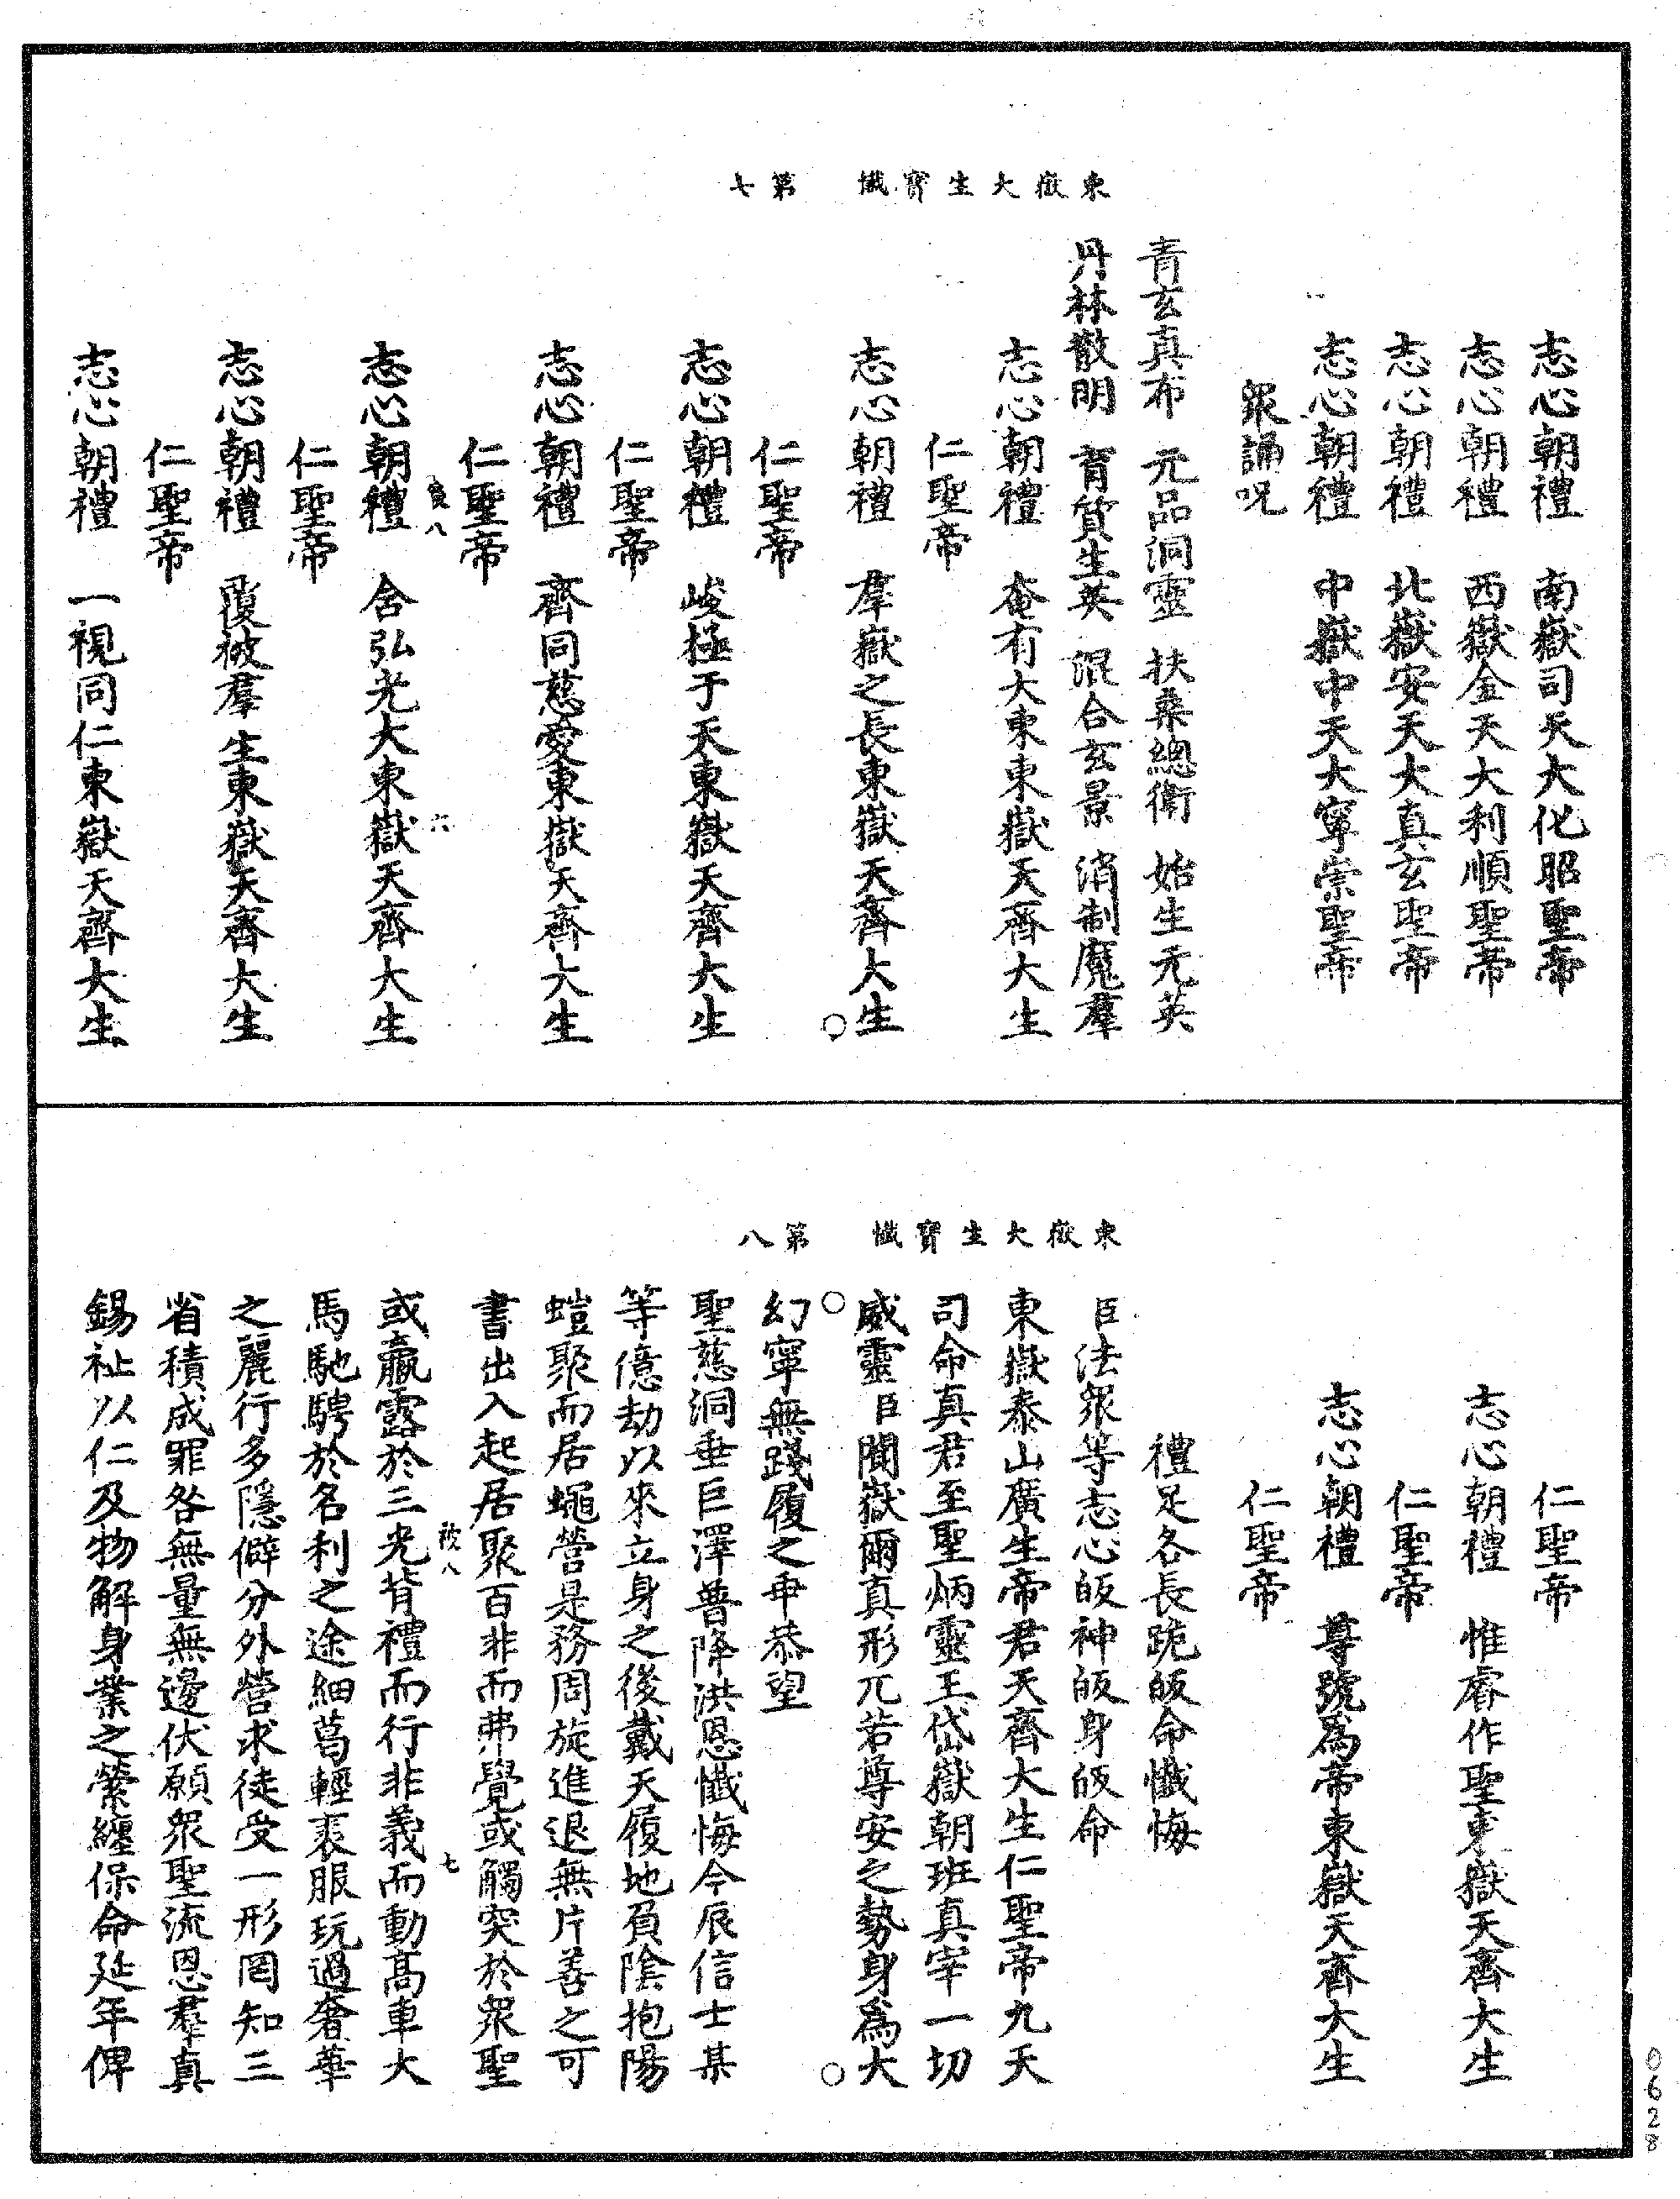 東嶽大生寶懺　第七
志心朝禮　南嶽司天大化昭聖帝
志心朝禮　西嶽金天大利順聖帝
志心朝禮　北嶽安天大真玄聖帝
志心朝禮　中嶽中天大寧崇聖帝
眾誦呪
青玄真布　元品洞靈　扶桑總衛　始生元英
丹林散明　育質生英　混合玄景　消制魔羣
志心朝禮　奄有大東東嶽天齊大生
仁聖帝
志心朝禮　羣嶽之長東嶽天齊大生
仁聖帝
志心朝禮　峻極于天東嶽天齊大生
仁聖帝
志心朝禮　齊同慈愛東嶽天齊大生
仁聖帝
八　六
志心朝禮　含弘光大東嶽天齊大生
仁聖帝
志心朝禮　覆被羣生東嶽天齊大生
仁聖帝
志心朝禮　一視同仁東嶽天齊大生
東嶽大生寶懺　第八
仁聖帝
志心朝禮　惟睿作聖東嶽天齊大生
仁聖帝
志心朝禮　尊號為帝東嶽天齊大生
仁聖帝
禮足各長跪皈命懺悔
臣法眾等志心皈神皈身皈命
東嶽泰山廣生帝君天齊大生仁聖帝九天
司命真君至聖炳靈王岱嶽朝班真宰一切
威靈臣聞嶽爾真形兀若尊安之勢身為大
幻寧無踐履之冉恭望
聖慈洞垂巨澤普降洪恩懺悔今辰信士某
等億劫以來立身之後戴天履地負陰抱陽
螘聚而居蠅營是務周旋進退無片善之可
書出入起居聚百非而弗覺或觸突於眾聖
八　七
或臝露於三光背禮而行非義而動高車大
馬馳騁於名利之途細葛輕裘服玩過奢華
之麗行多隱僻分外營求徒受一形罔知三
省積成罪咎無量無邊伏願眾聖流恩羣真
錫祉以仁及物解身業之縈纏保命延年俾
0628